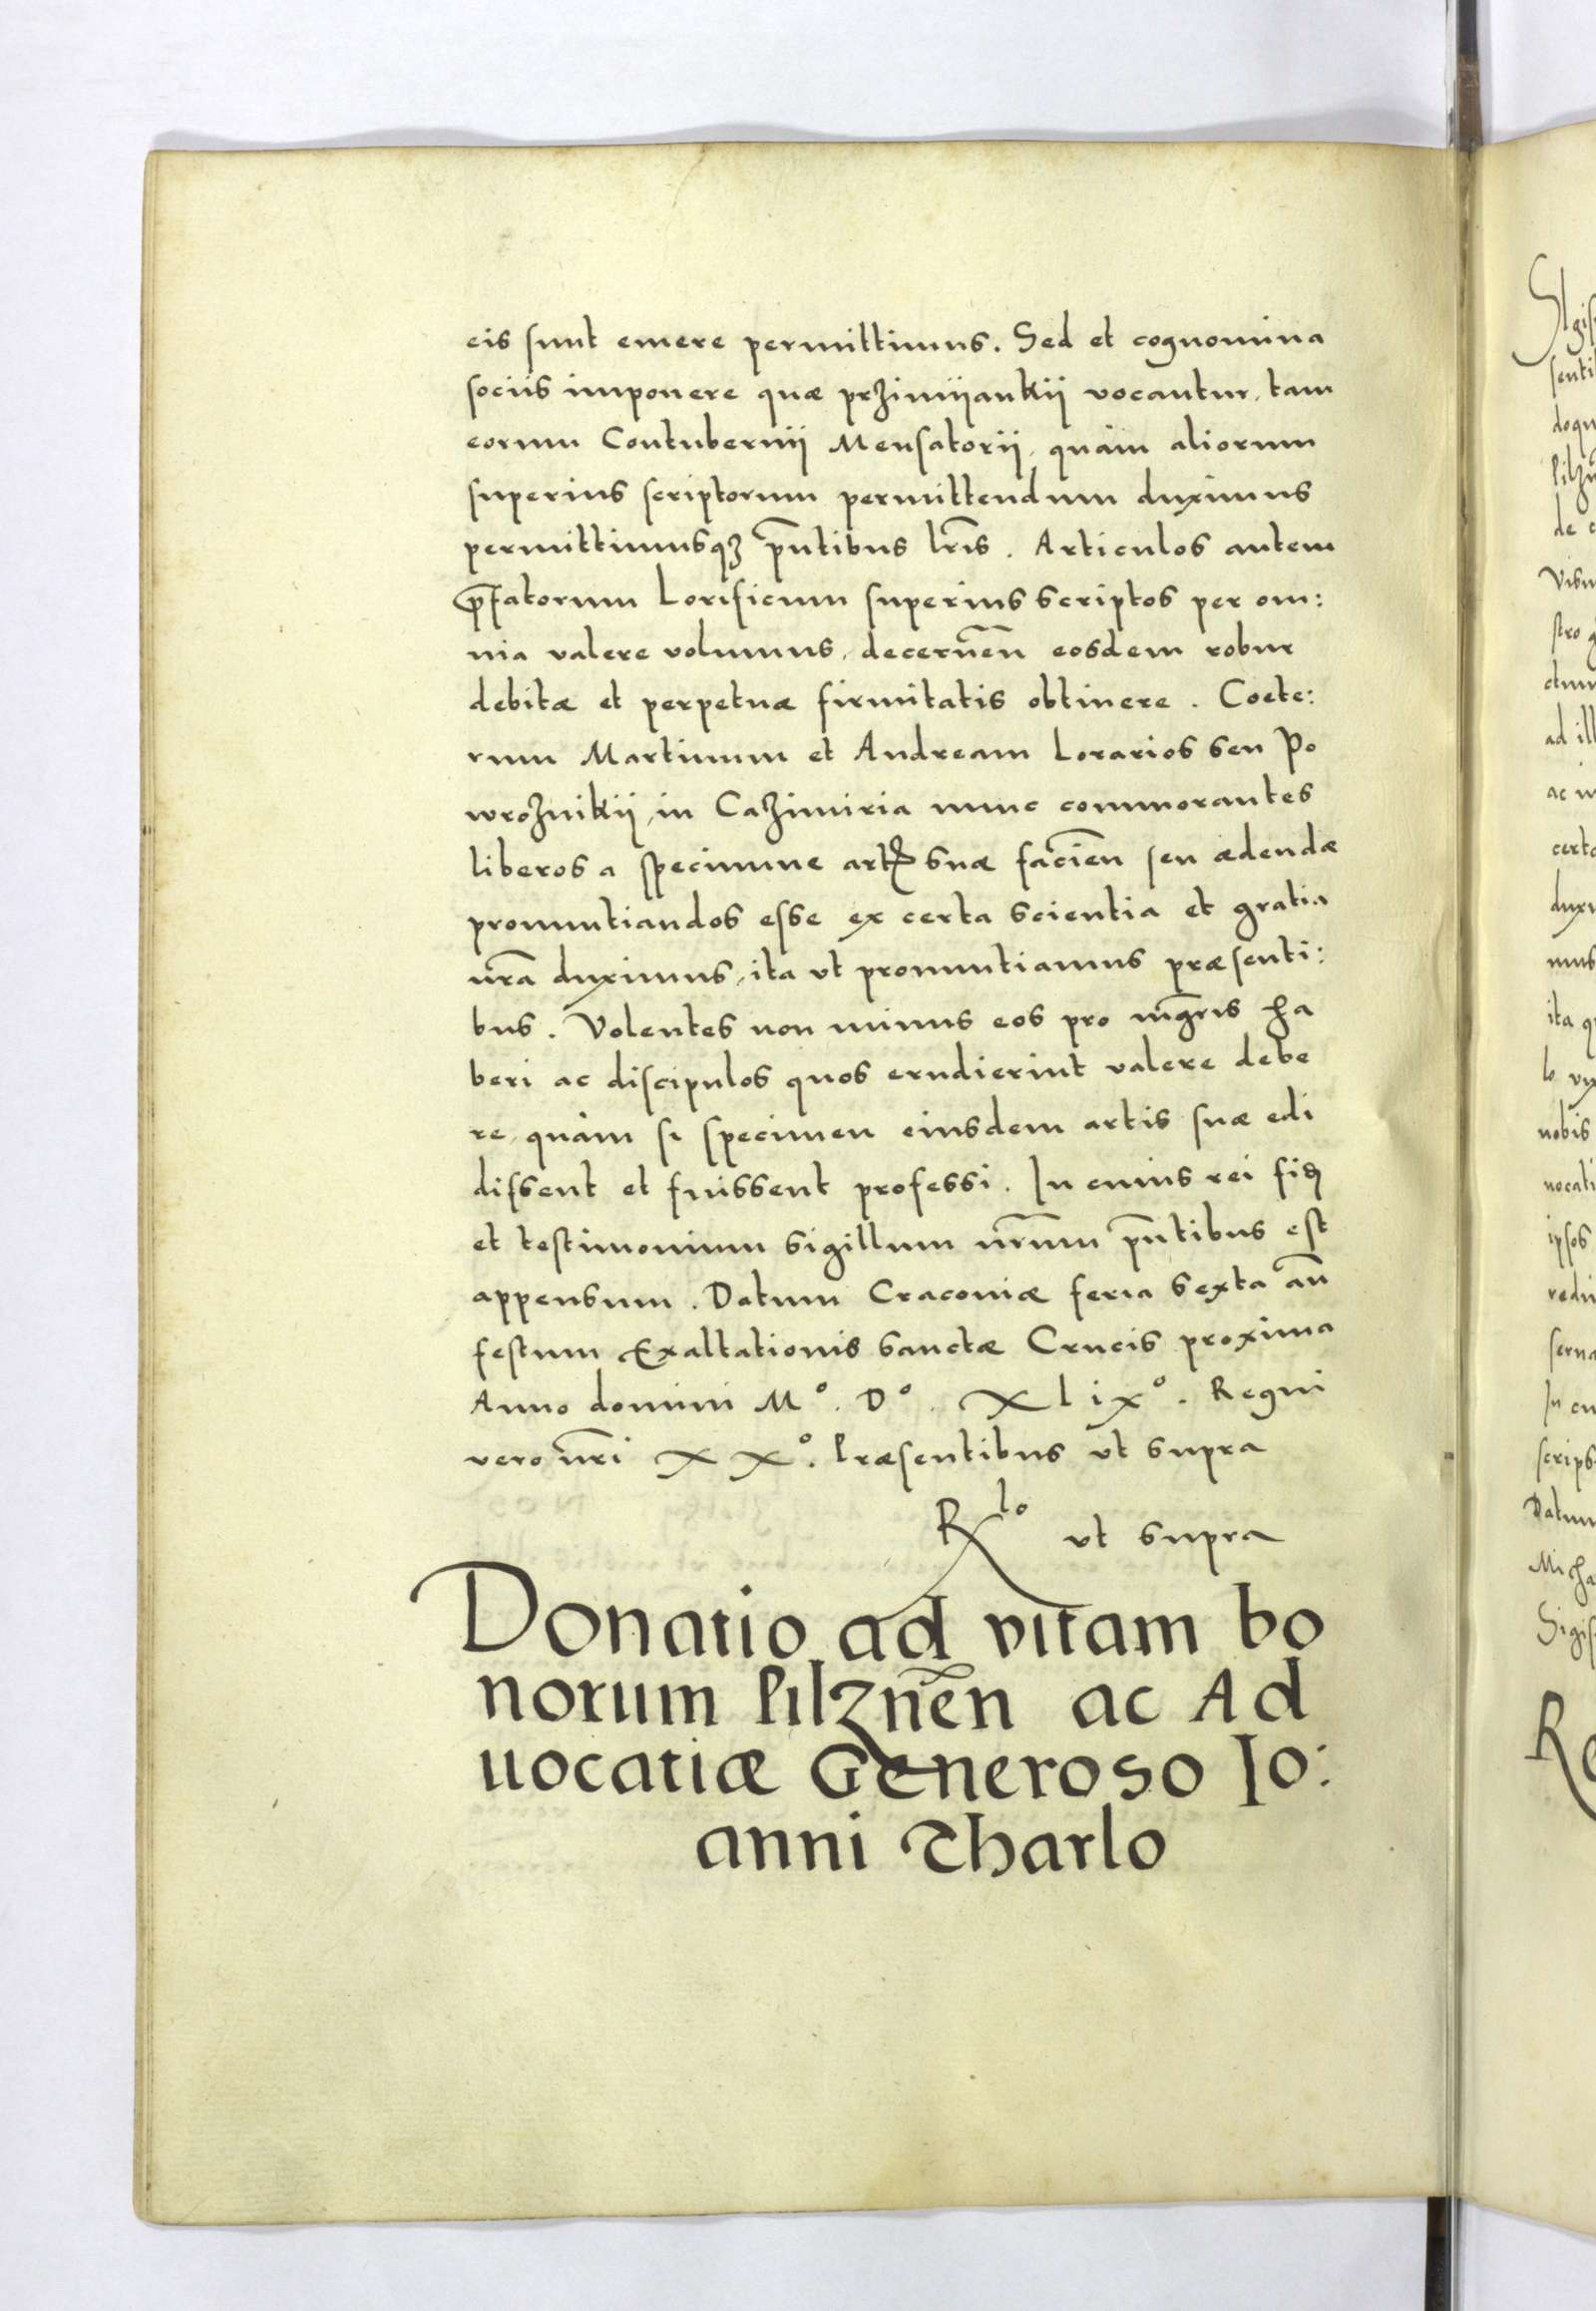 eis sunt emere permittimus. Sed et cognomina
sociis imponere quæ przimijankij vocantur, tam
eorum Contubernij Mensatorij, quàm aliorum
superius scriptorum permittendum duximus
permittimusqꝫ pñtibus lr̃is. Articulos autem
p̃fatorum Lorificum superius scriptos per om:
nia valere volumus, decerneñ eosdem robur
debitæ et perpetuæ firmitatis obtinere. Coete:
rum Martinum et Andream Lorarios seu Po
wroznikij, in Cazimiria nunc commorantes
liberos a specimine artꝭ suæ facieñ seu ædendæ
pronuntiandos esse ex certa scientia et gratia
nr̃a duximus, ita vt pronuntiamus præsenti:
bus. Volentes non minus eos pro mg̃ris ha
beri ac discipulos quos erudierint valere debe
re, quàm si specimen eiusdem artis suæ edi
dissent et fuissent professi. In cuius rei fidẽ
et testimonium sigillum nr̃um pñtibus est
appensum. Datum Cracouiæ feria sexta añ
festum Exaltationis sanctæ Crucis proxima
Anno domini Mº. Dº. XLixº. Regni
vero nr̃i XXº. Præsentibus vt supra
Rlo vt supra
Donatio ad vitam bo
norum Pilzneñ ac Ad
uocatiæ Generoso Io:
anni Tharlo
Sigis
senti
doqu
Pilzn
de
Visu
stro
ctum
ad ill
ac
certa
duxi
mus
ita q
lo vx
nobis
uocati
ipsos
redi
serua
In cu
scrips
Datum
Micha
Sigis
Re